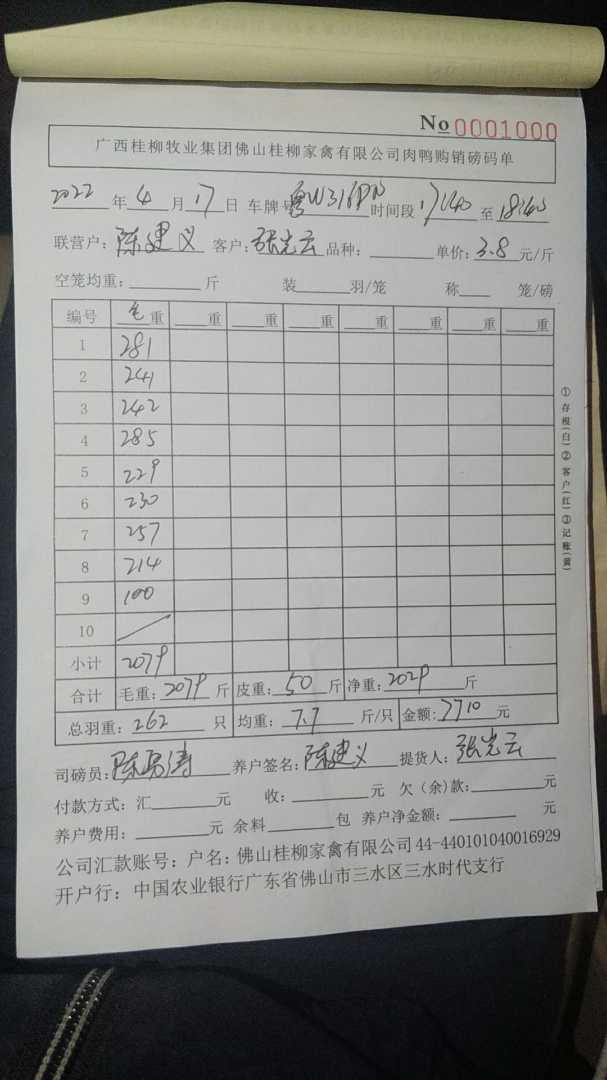 No 0001000
广西桂柳牧业集团佛山桂柳家禽有限公司肉鸭购销磅码单
2022 年 4 月 17 日 车牌号 粤W316PN 时间段 17:40 至 18:40
联营户: 陈建义 客户: 张光云 品种: 单价: 3.8 元/斤
空笼均重: 斤 装 羽/笼 称 笼/磅
编号 毛重 重 重 重 重 重 重 重
1 281
2 241
3 242
4 285
5 229
6 230
7 257
8 214
9 100
10
小计 2079
合计 毛重: 2079 斤 皮重: 50 斤 净重: 2029 斤
总羽重: 262 只 均重: 7.7 斤/只 金额: 7710 元
司磅员: 陈 涛 养户签名: 陈建义 提货人: 张光云
付款方式: 汇 元 收: 元 欠(余)款: 元
养户费用: 元 余料 包 养户净金额: 元
公司汇款账号: 户名: 佛山桂柳家禽有限公司 44-440101040016929
开户行: 中国农业银行广东省佛山市三水区三水时代支行
①存根(白)②客户(红)③记账(黄)